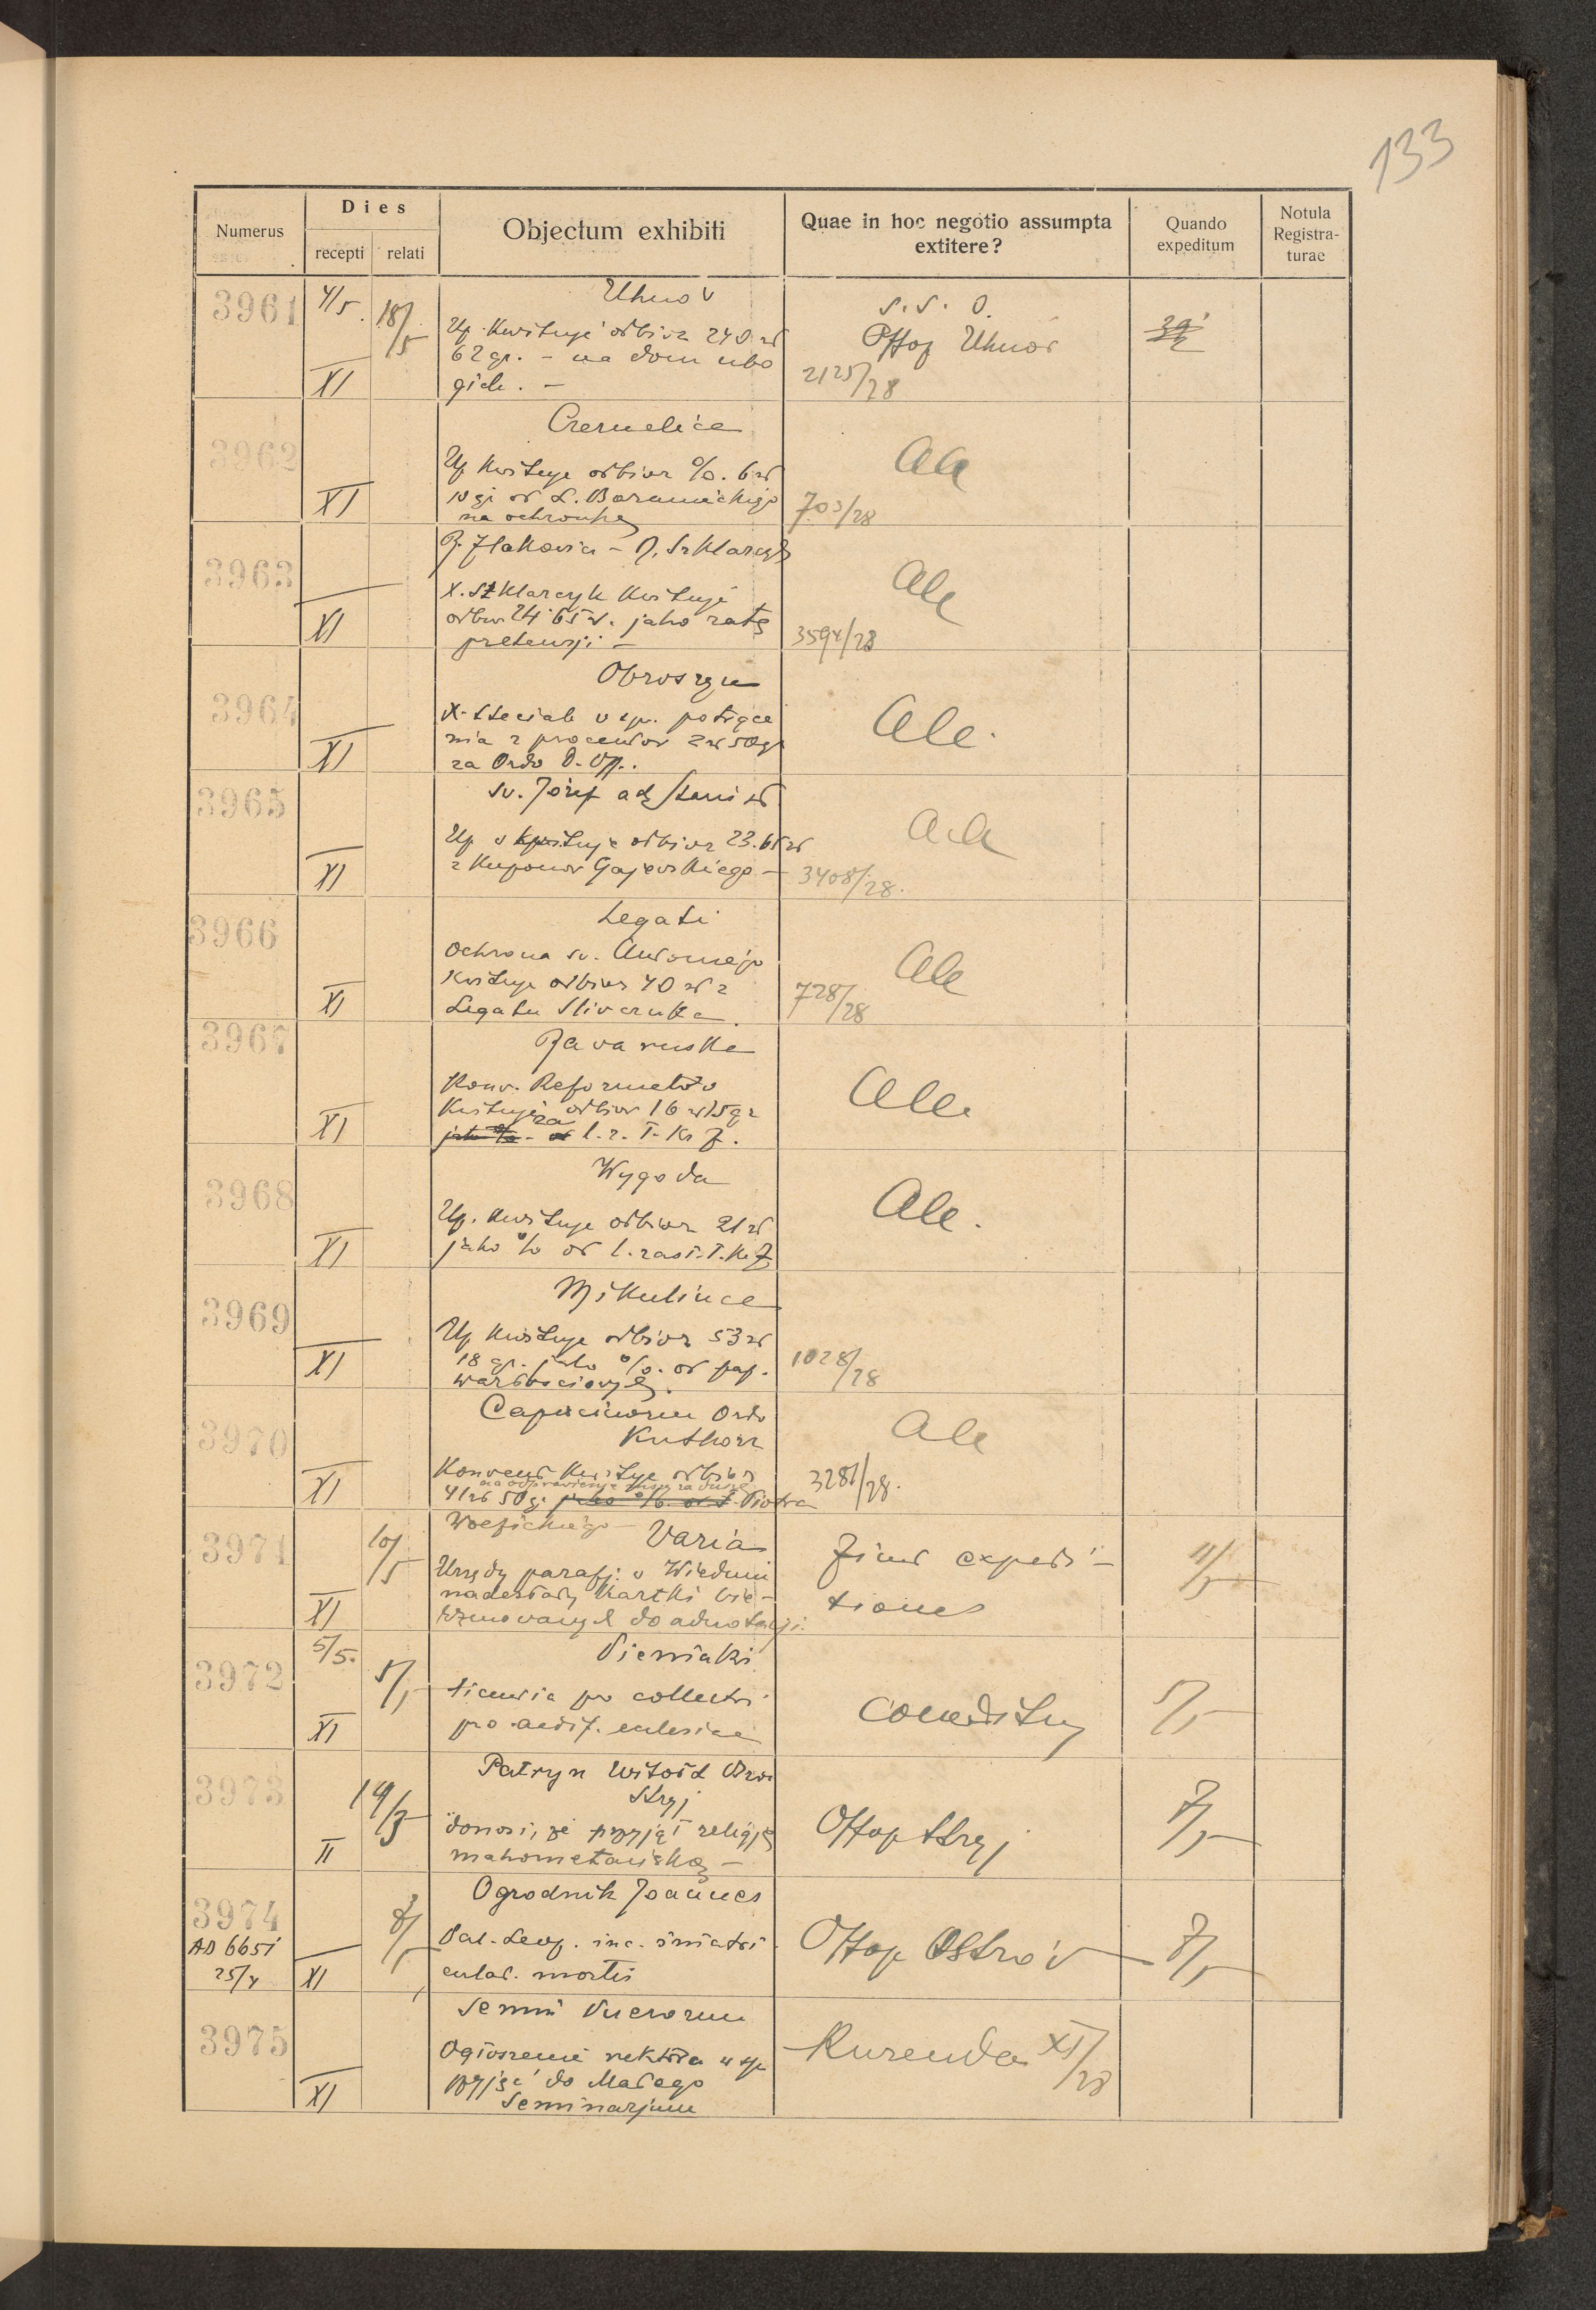 133
Numerus
Dies
recepti
relati
Objectum exhibiti
Quae in hoc negotio assumpta extitere?
Quando expeditum
Notula Registra-turae
3961
4/5
18/5
XI
Uhnov
Up. Kwituje odbior 240 zł
62 gr. – na dom ubo
gich. –
S. S. O.
Offop Uhnov
2125/28
3962
XI
Czernelica
Up Kwituje odbior %. 6 zł
10 gr od
na ochronkę
Ale
703/28
3963
XI
X. Szklarczyk Kwituje
odbior 24 65 zł. jako ratę
pretensji –
Ale
3594/28
3964
XI
Obroszyn
X. Steciak v sp. potrące
nia z procentov 2 zł 50 gr
za Ordo D. Off.
Ale.
3965
XI
Sv. Józef ad Stani
Up v kwituje odbior 23.65 zł
z Kuponov Gajevskiego –
Ale
3408/28.
3966
XI
Legati
Ochrona sv. Antoniego
Kwituje odbior 40 zł z
Legatu
Ale
728/28
3967
XI
Rava ruska
Konv. Reformatov
Kwituje odbior 16 zł 15 gr
za
l. z. T. Kr Z.
Ale
3968
XI
Wygoda
Up. Kwituje odbior 21 zł
jako % od l. zast. T. Kr Z
Ale.
3969
XI
Mikulince
Up Kwituje odbior 53 zł
18 gr. jako %. od pap.
wartosciovych.
1028/28
3970
XI
Capucinorum Ordo
Kutkorz
Konvent Kwituje odbior
na odpravienie mszy za duszę
41 zł 50 gr jako %. od Piotra
Ale
3281/28.
3971
10/5
XI
Varia
Urzędy parafj. v Wiedniu
nadesłały Kartki bie-
rzmovanych do adnotacji.
Fiant expedi-
tiones
11/5
3972
5/5.
5/5
XI
Pieniaki
licentia pro collectis
pro aedif. ecclesiae
Conceditur
5/5
3973
14/5
II
Patryn Witold
Stryj
donosi, że przyjął religję
mahometańską –
Offop Stryj
7/5
3974
AD 6651
25/4
8/5
XI
Ogrodnik Joannes
Pal. Leop. inc. immatri
culat. mortis
Offop Ostrov
8/5
3975
XI
Semin Puerorum
Ogłoszenie rektora v sp
przyjęć do Małego
Seminarjum
Kurenda XI/28